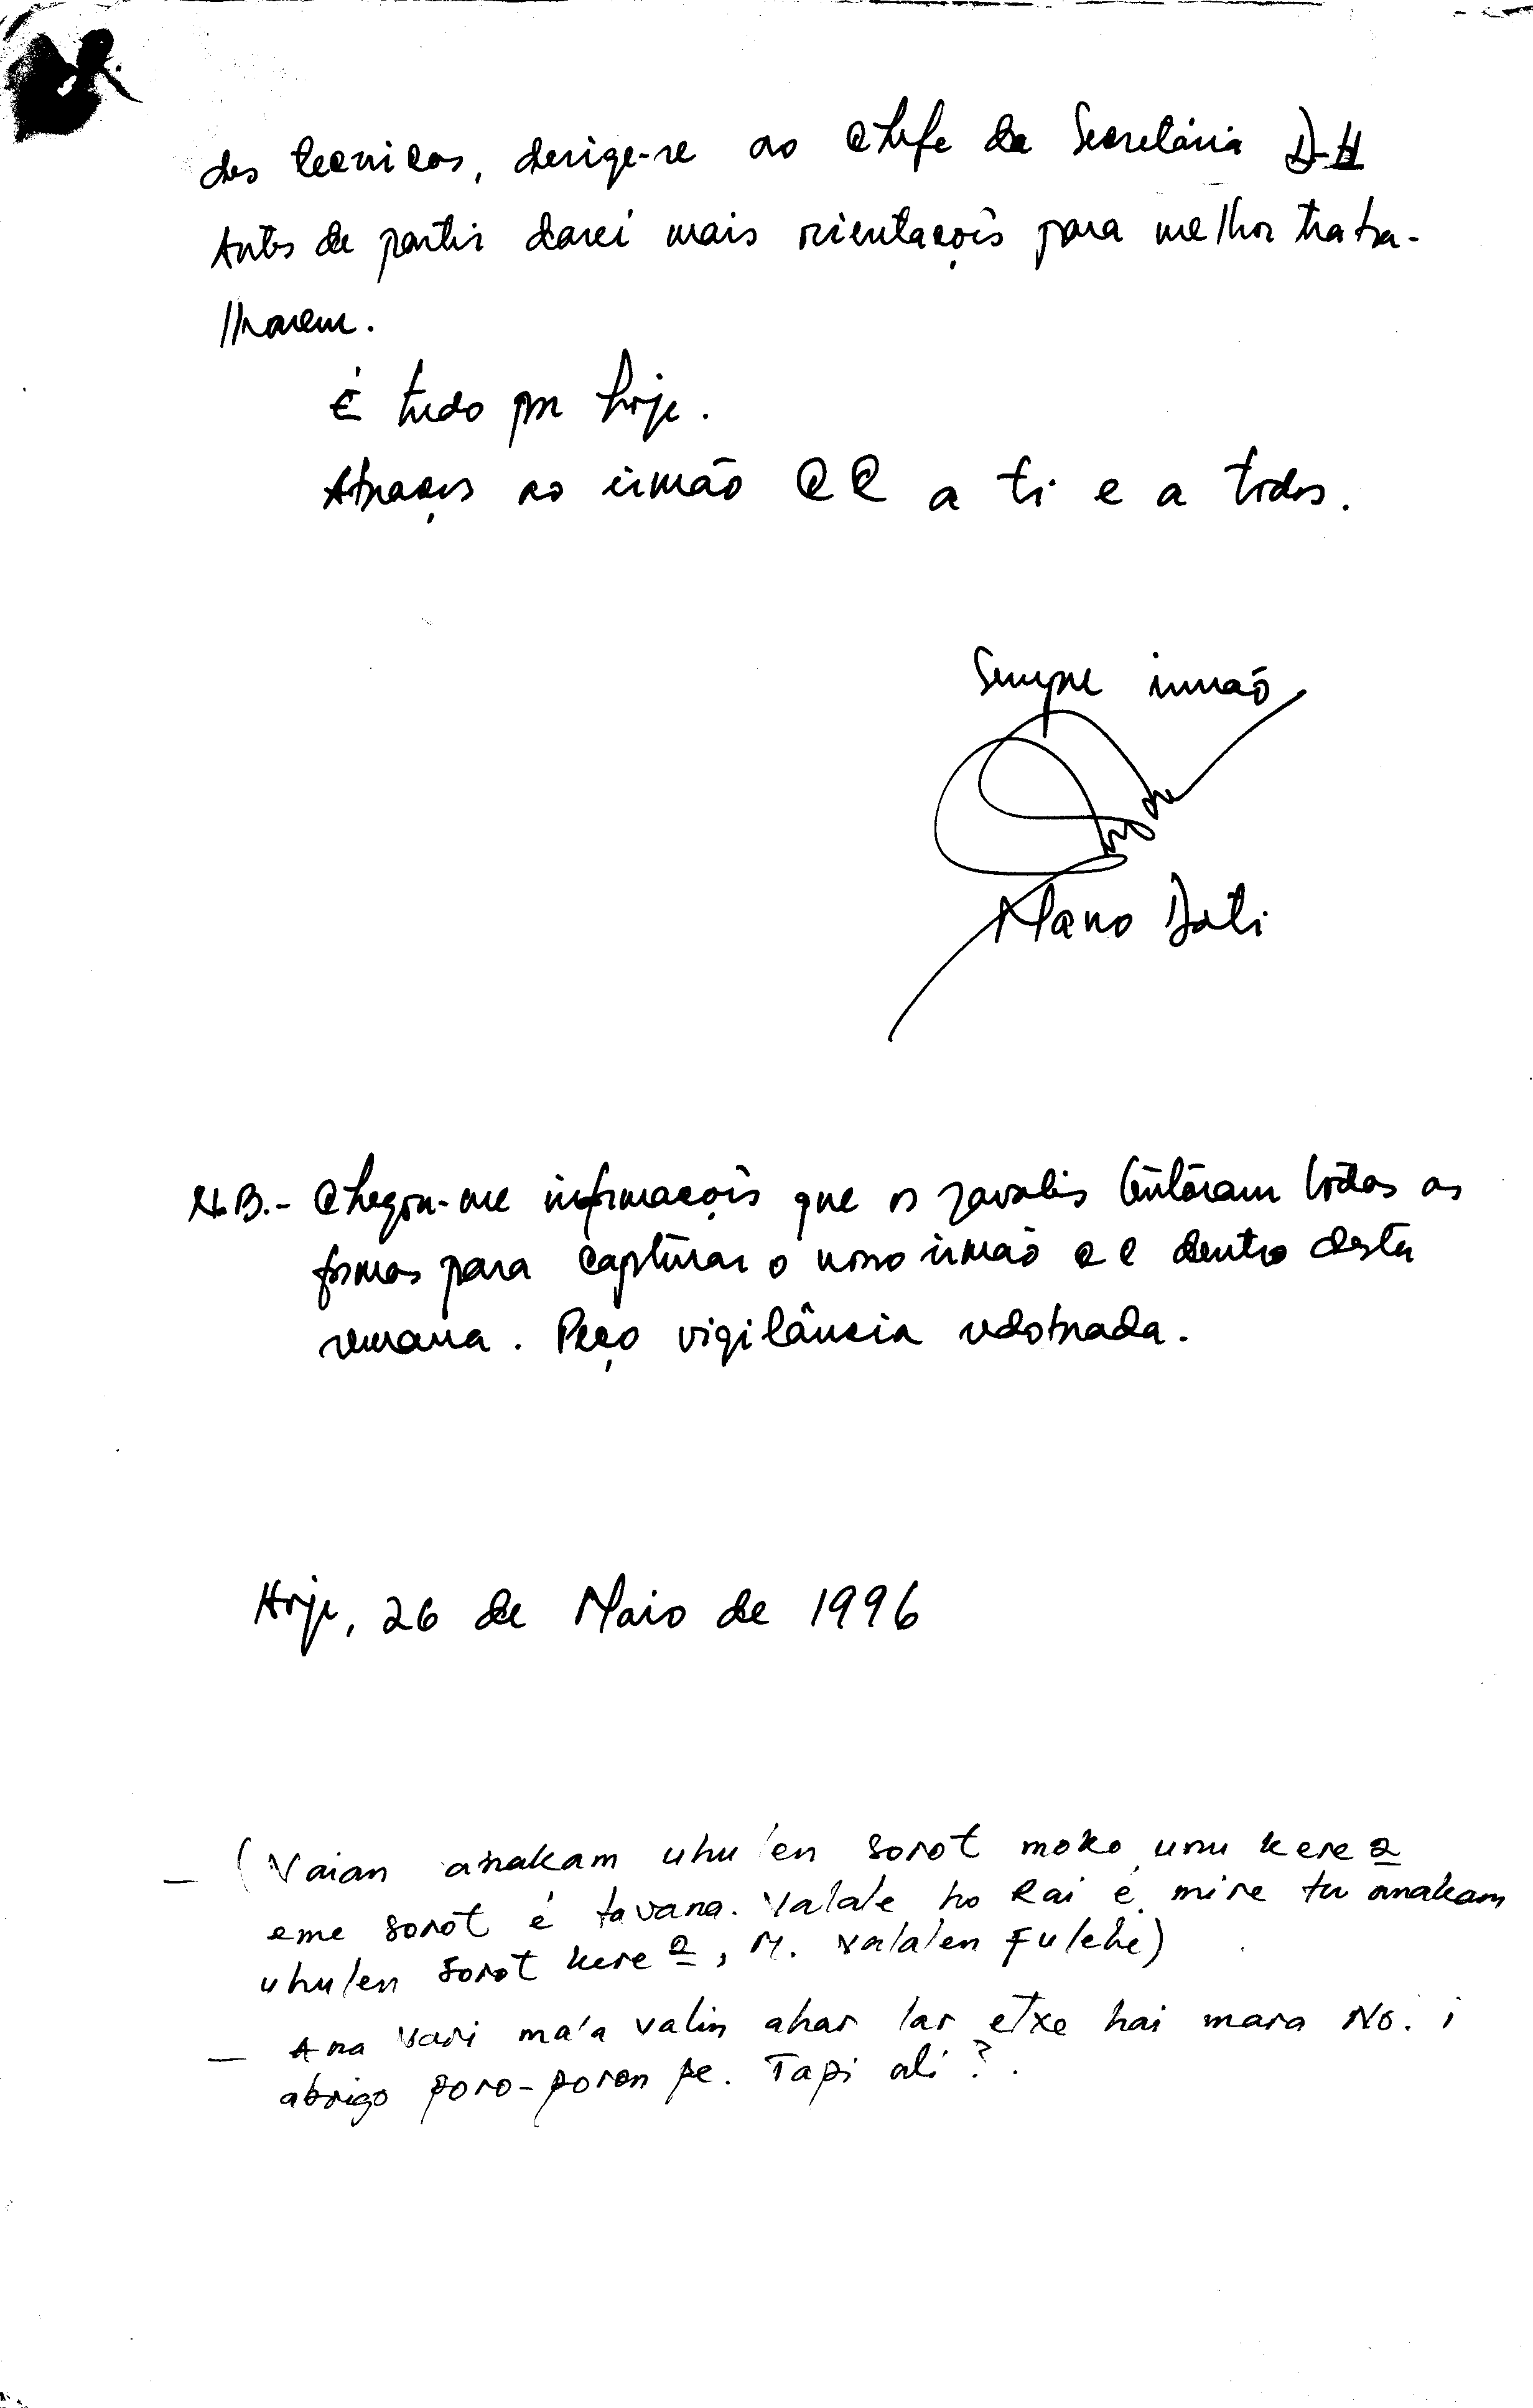 des tecnicos, derige-se ao chefe da Secretária D-H
Antes de partir darei mais orientaçois para melhor traba-
lharem.
É tudo por hoje.
Abraços ao irmão CC a ti e a todos.
Sempre irmão
Mano Dati
N.B.- Chegou-me informaçois que os javalis tentaram todas as
formas para capturar o nosso irmão CC dentro desta
semana. Peço vigilância redobrada.
Hoje, 26 de Maio de 1996
- (Vaian anakam uhu'en sorot moko unu kere 2
eme sorot é tavana. Valale ho Rai é mire tu anakam
uhulen sorot kere 2, M. vala'en Fulehe)
- Ana vari ma'a valin ahar lar etxe hai mara No. i
abrigo poro-poron pe. Tapi ali?.